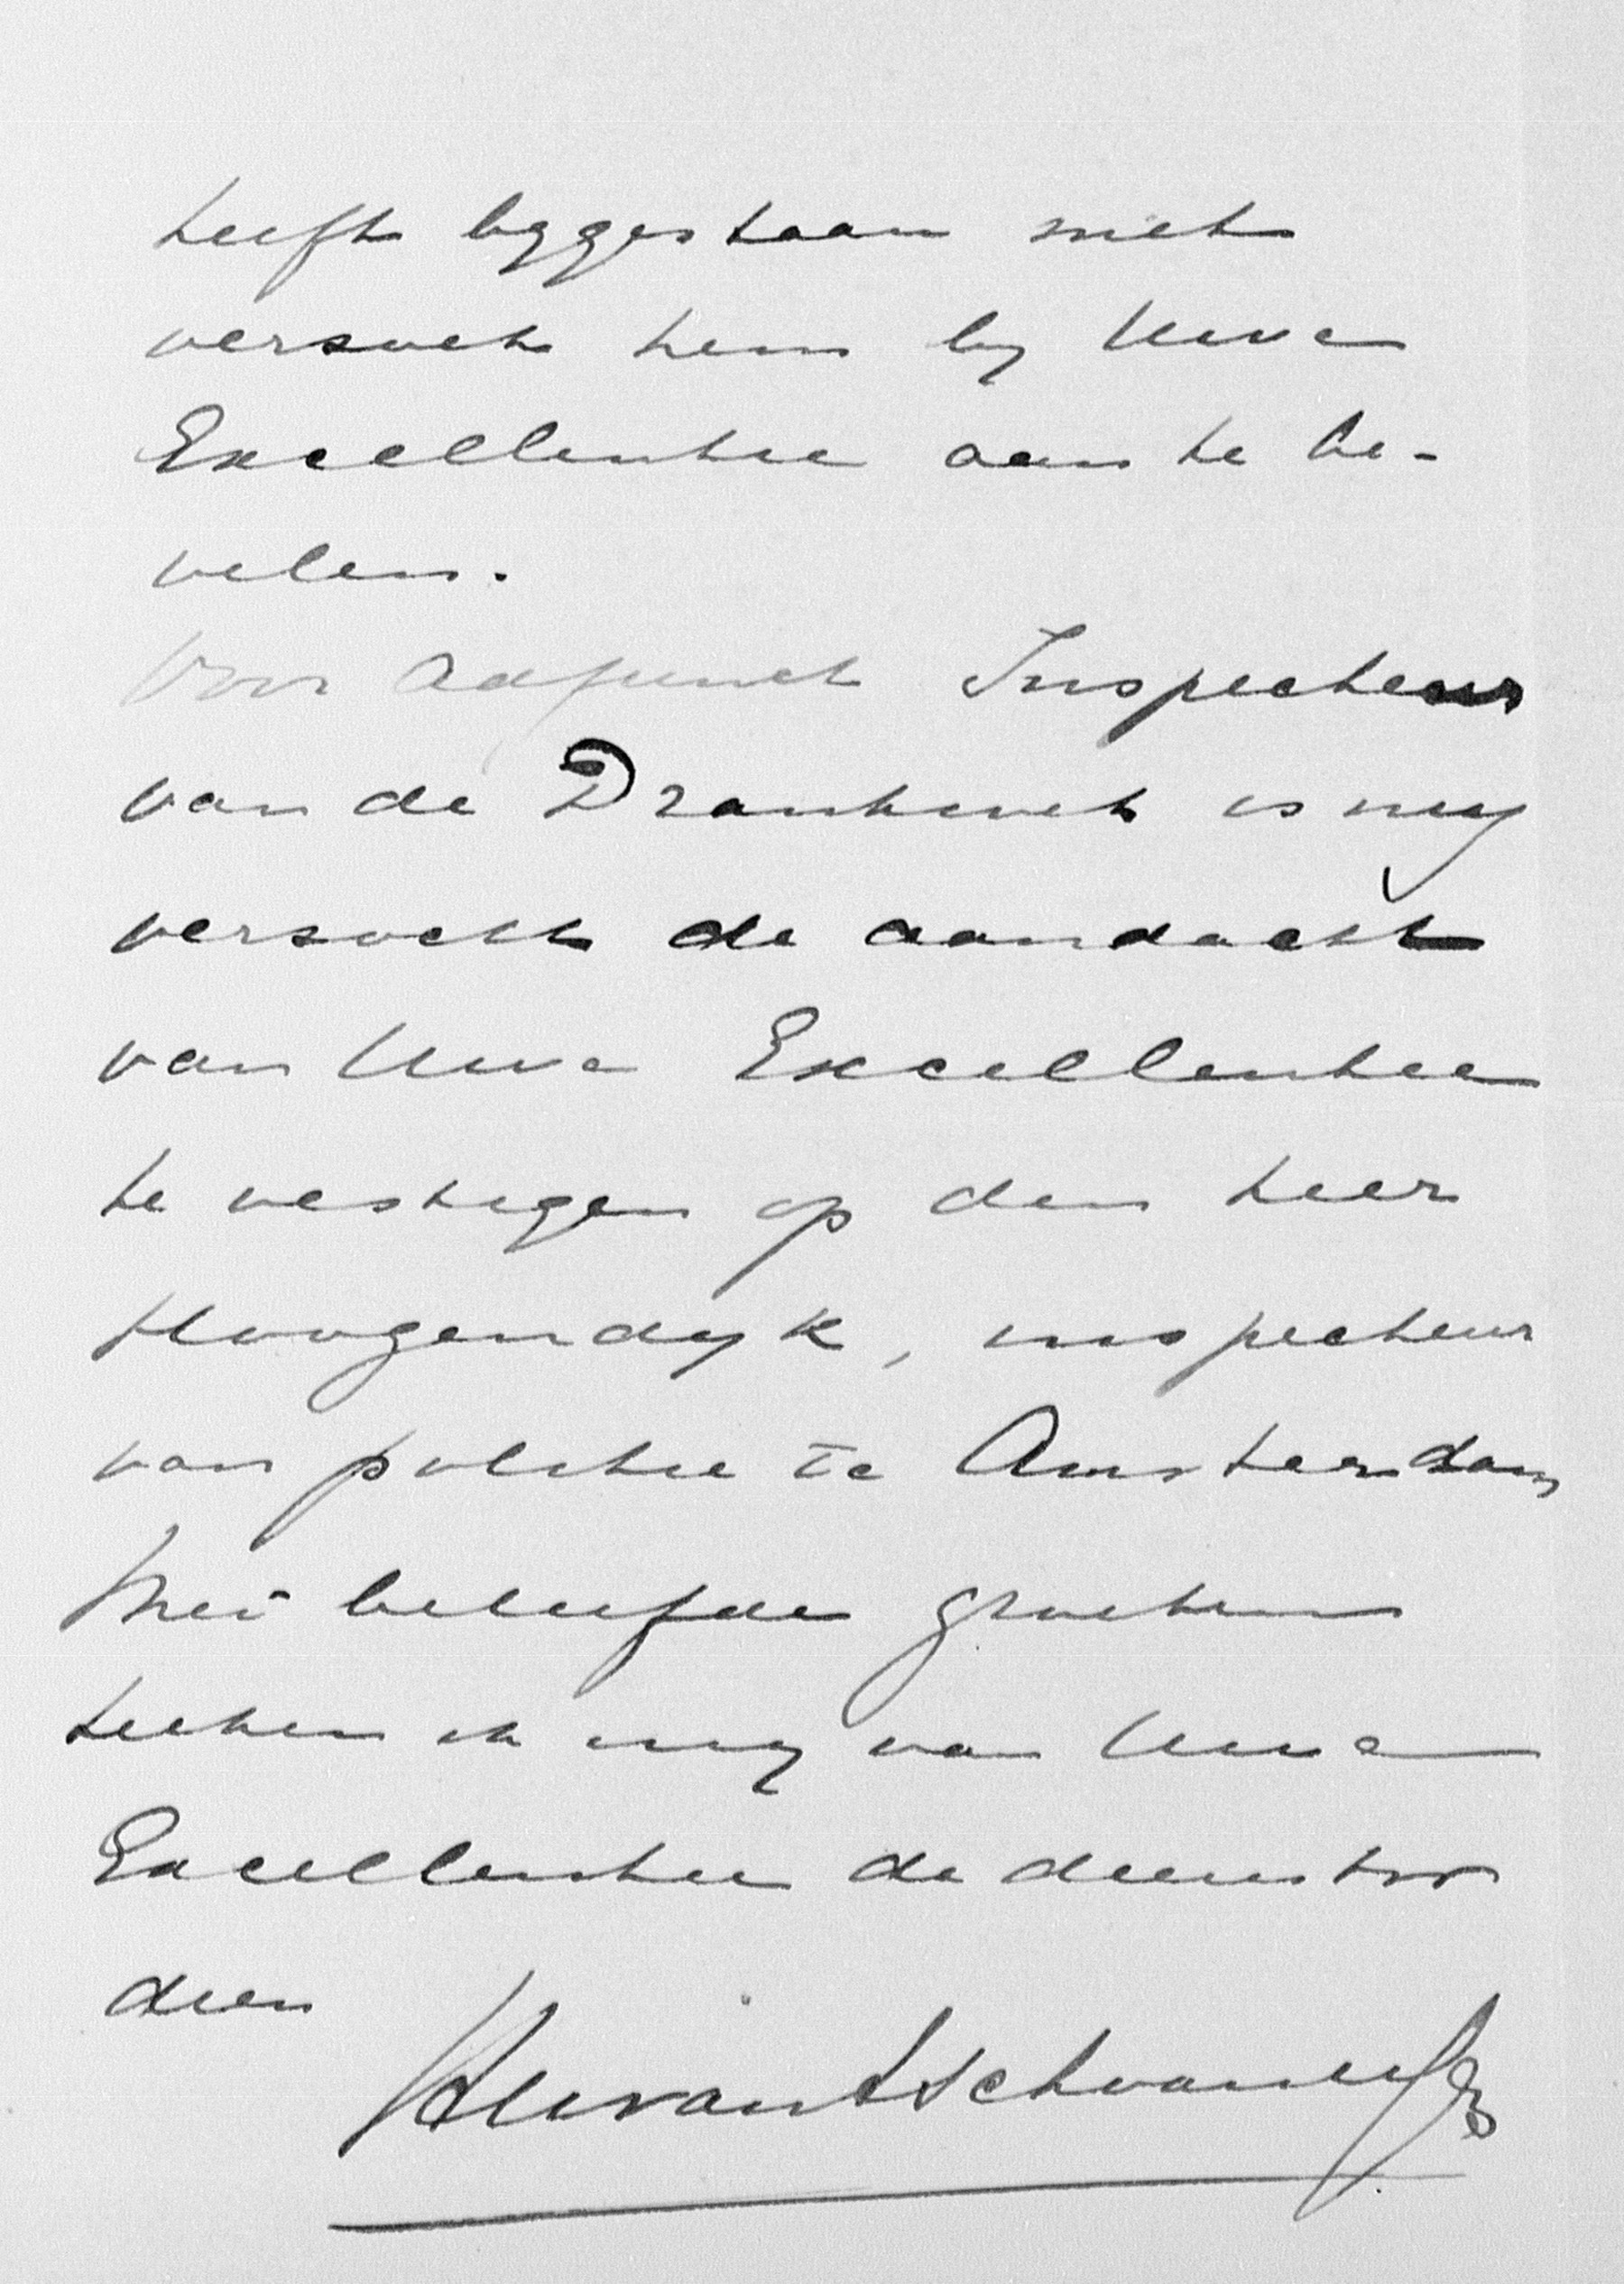 heeft bygestaan met
versoek hem by Uwe
Excellentie aan te be-
velen.
Voor adjunct Inspecteur
van de Drankwet is my
versocht de aandacht
van Uwe Excellentie
te vestigen op den heer
Hoogendyk, inspecteur
van politie te Amsterdam
Met beleefde groeten
teeken ik my van Uwe
Excellentie de dienstv
dien